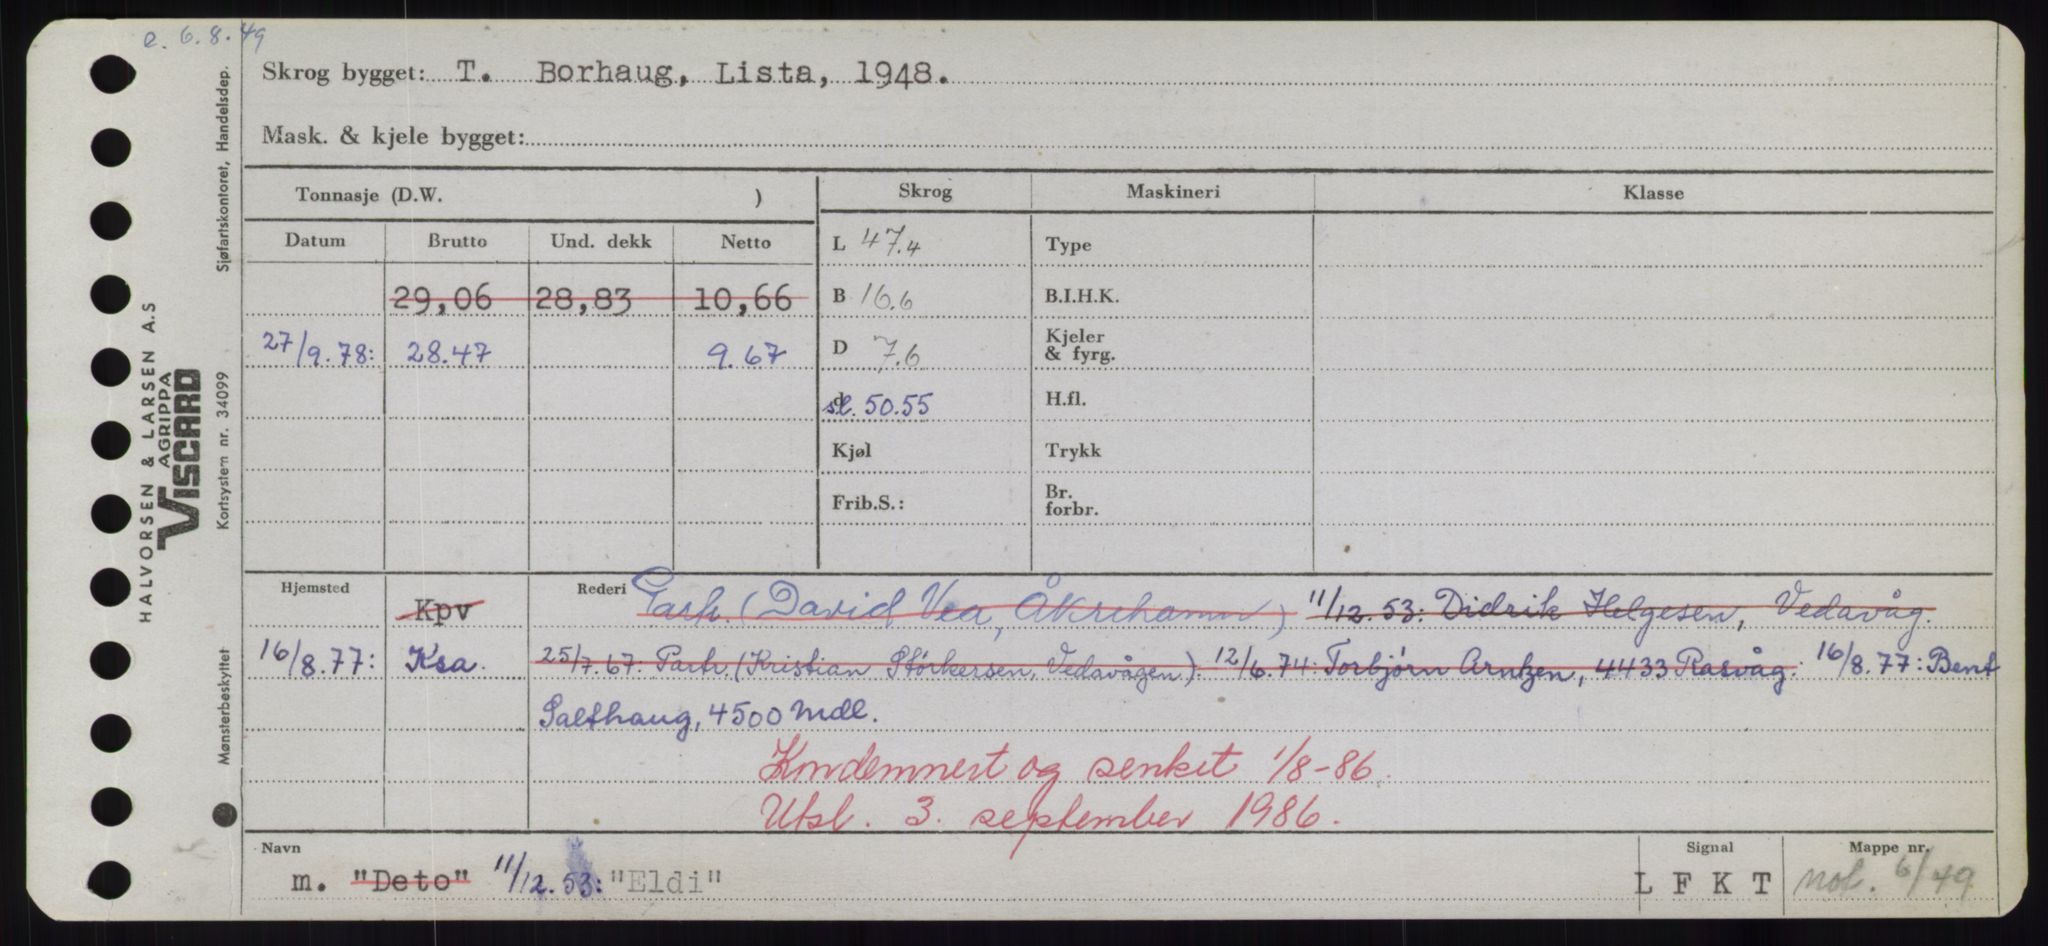 e. 6.8.49
Skrog bygget: T. Borhaug, Lista, 1948.
Mask. & kjele bygget:
Tonnasje (D.W. )
Skrog Maskineri Klasse
Datum Brutto Und. dekk Netto
L 47.4 Type
29,06 28,83 10,66
B 16.6 B.I.H.K.
27/9.78: 28.47 9.67
D 7.6 Kjeler & fyrg.
d sl. 50.55 H.fl.
Kjøl Trykk
Frib.S.: Br. forbr.
Hjemsted Kpv Rederi Partr. (David Vea, Åkrehamn) 11/12.53: Didrik Helgesen, Vedavåg.
16/8.77: Ksa. 25/7.67: Partr. (Kristian Størkersen, Vedavågen). 12/6.74: Torbjørn Arntzen, 4433 Rasvåg. 16/8.77: Bent
Salthaug, 4500 Mdl.
Kondemnert og senket 1/8-86.
Utsl. 3. september 1986.
Navn Signal Mappe nr.
m. "Deto" 11/12.53: "Eldi" L F K T not. 6/49
HALVORSEN & LARSEN A.S
AGRIPPA
VISCARD
Kortsystem nr. 34099
Sjøfartskontoret, Handelsdep.
Mønsterbeskyttet